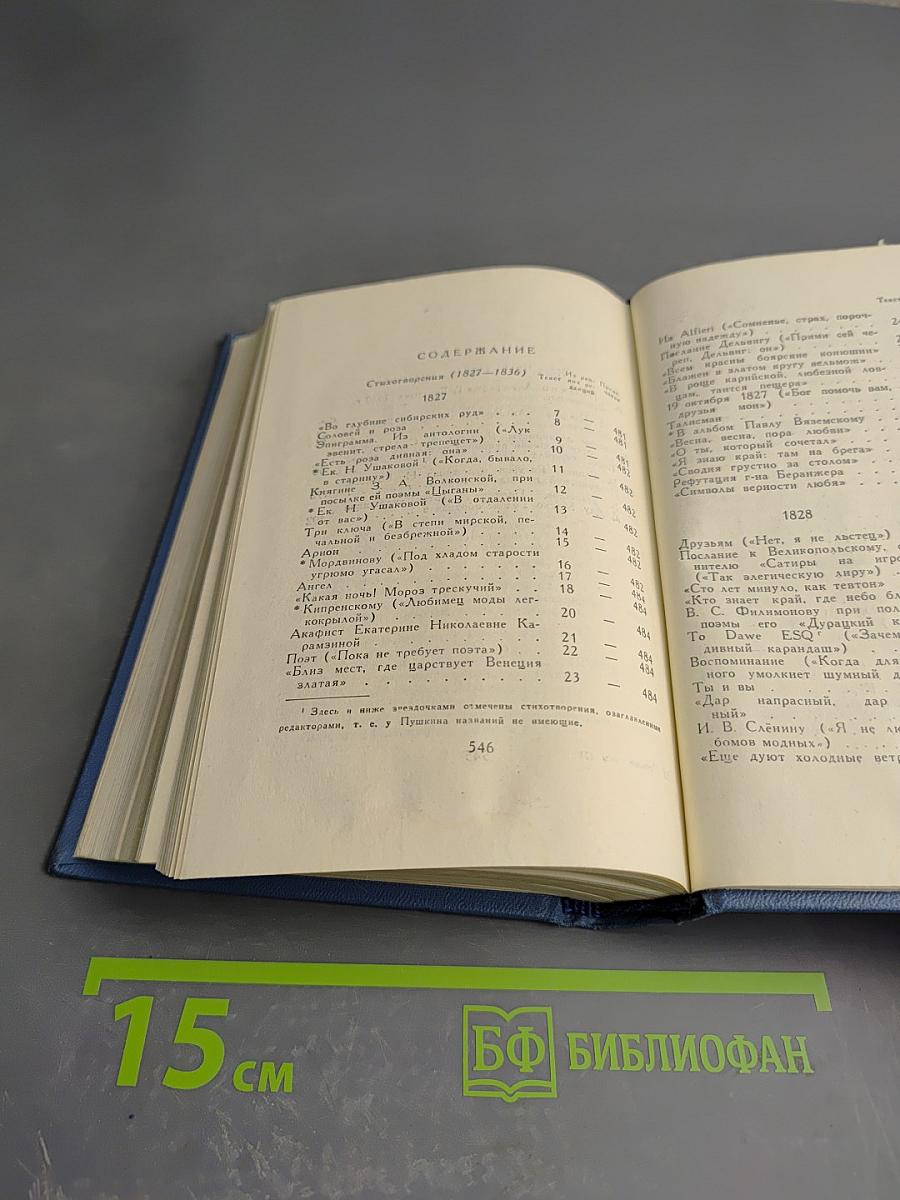 СОДЕРЖАНИЕ
Стихотворения (1827—1836)
Текст
1827
«Во глубине сибирских руд» . . . 7 — 481
Соловей и роза . . . . . . . 8 — 481
Эпиграмма. Из антологии («Лук
звенит, стрела трепещет») . . . 9 — 481
«Есть роза дивная: она» . . . . 10 — 482
* Ек. Н. Ушаковой¹ («Когда, бывало,
в старину») . . . . . . . 11 — 482
Княгине З. А. Волконской, при
посылке ей поэмы «Цыганы» . . 12 — 482
* Ек. Н. Ушаковой («В отдалении
от вас») . . . . . . . . 13 — 482
Три ключа («В степи мирской, пе-
чальной и безбрежной») . . . 14 — 482
Арион . . . . . . . . . 15 — 482
* Мордвинову («Под хладом старости
угрюмо угасал») . . . . . . 16 — 482
Ангел . . . . . . . . . 17 — 484
«Какая ночь! Мороз трескучий» . . 18 — 484
* Кипренскому («Любимец моды лег-
кокрылой») . . . . . . . 20 — 484
Акафист Екатерине Николаевне Ка-
рамзиной . . . . . . . . 21 — 484
Поэт («Пока не требует поэта») . . 22 — 484
«Близ мест, где царствует Венеция
златая» . . . . . . . . . 23 — 484
¹ Здесь и ниже звездочками отмечены стихотворения, озаглавленные
редакторами, т. е. у Пушкина названий не имеющие.
546
Текст
Из Alfieri («Сомненье, страх, пороч-
ную надежду») . . . .
Послание Дельвигу («Прими сей че-
реп, Дельвиг: он») . . .
«Всем красны боярские конюшни»
«Блажен в златом кругу вельмож» .
«В роще карийской, любезной лов-
цам, таится пещера» . . .
19 октября 1827 («Бог помочь вам,
друзья мои») . . . . .
Талисман . . . . . . .
* В альбом Павлу Вяземскому .
«Весна, весна, пора любви» . .
«О ты, который сочетал» . . .
«Я знаю край: там на брега» . .
«Сводня грустно за столом» . .
Рефутация г-на Беранжера . . .
«Символы верности любя» . . .
1828
Друзьям («Нет, я не льстец»)
Послание к Великопольскому,
нителю «Сатиры на
(«Так элегическую лиру») .
«Сто лет минуло, как тевтон»
«Кто знает край, где небо
В. С. Филимонову при
поэмы его «Дурацкий
To Dawe ESQʳ («Зачем
дивный карандаш») . . .
Воспоминание («Когда для
ного умолкнет шумный
Ты и вы . . . . . .
«Дар напрасный, дар
ный» . . . . . . .
И. В. Слёнину («Я не
бомов модных») . . . .
«Еще дуют холодные
15 см
БФ БИБЛИОФАН